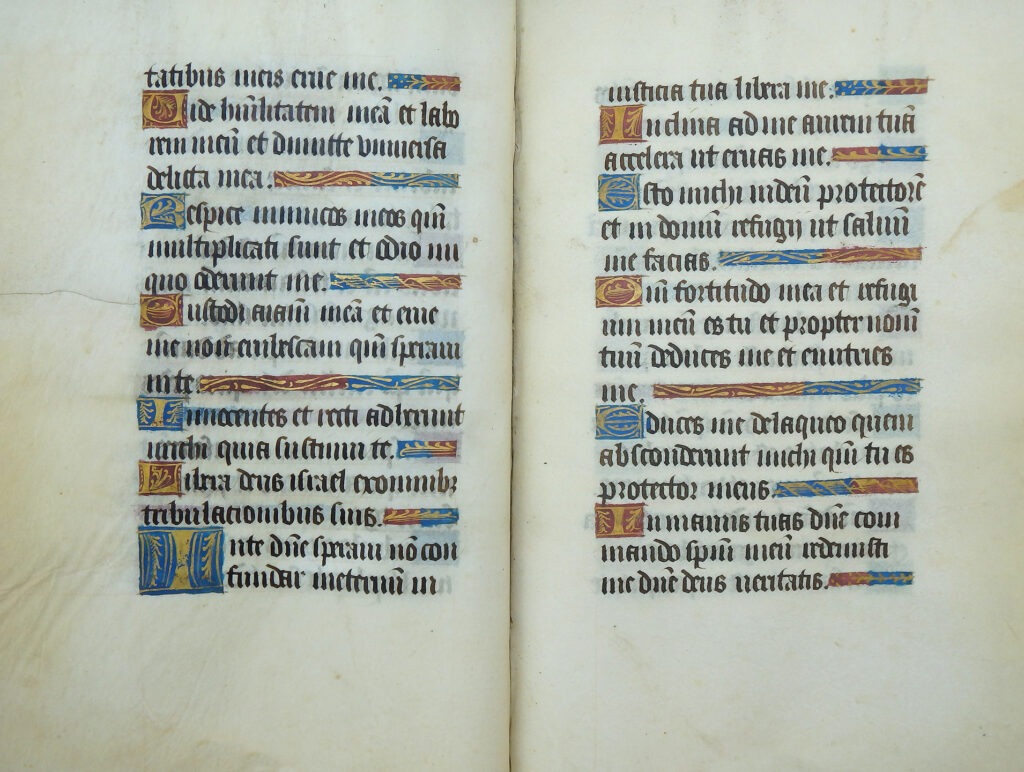 tatibus meis erue me.
Vide hūilitatem meā et labo
rem meū et dimitte vniuersa
delicta mea.
Respice inimicos meos qm̄
multiplicati sunt et odio ini
quo oderunt me.
Custodi aīam meā et erue
me non erubescam qm̄ speraui
in te.
Innocentes et recti adheserunt
michi quia sustinui te.
Libera deus israel ex omnibꝫ
tribulacionibus suis.
In te dn̄e speraui nō con
fundar in eternū in
iusticia tua libera me.
Inclina ad me aurem tuā
accelera ut eruas me.
Esto michi in deū protectorē
et in domū refugij ut saluū
me facias.
Qm̄ fortitudo mea et refugi
um meū es tu et propter nomē
tuū deduces me et enutries
me.
Educes me de laqueo quem
absconderunt michi qm̄ tu es
protector meus.
In manus tuas dn̄e com
mendo spm̄ meū redemisti
me dn̄e deus ueritatis.